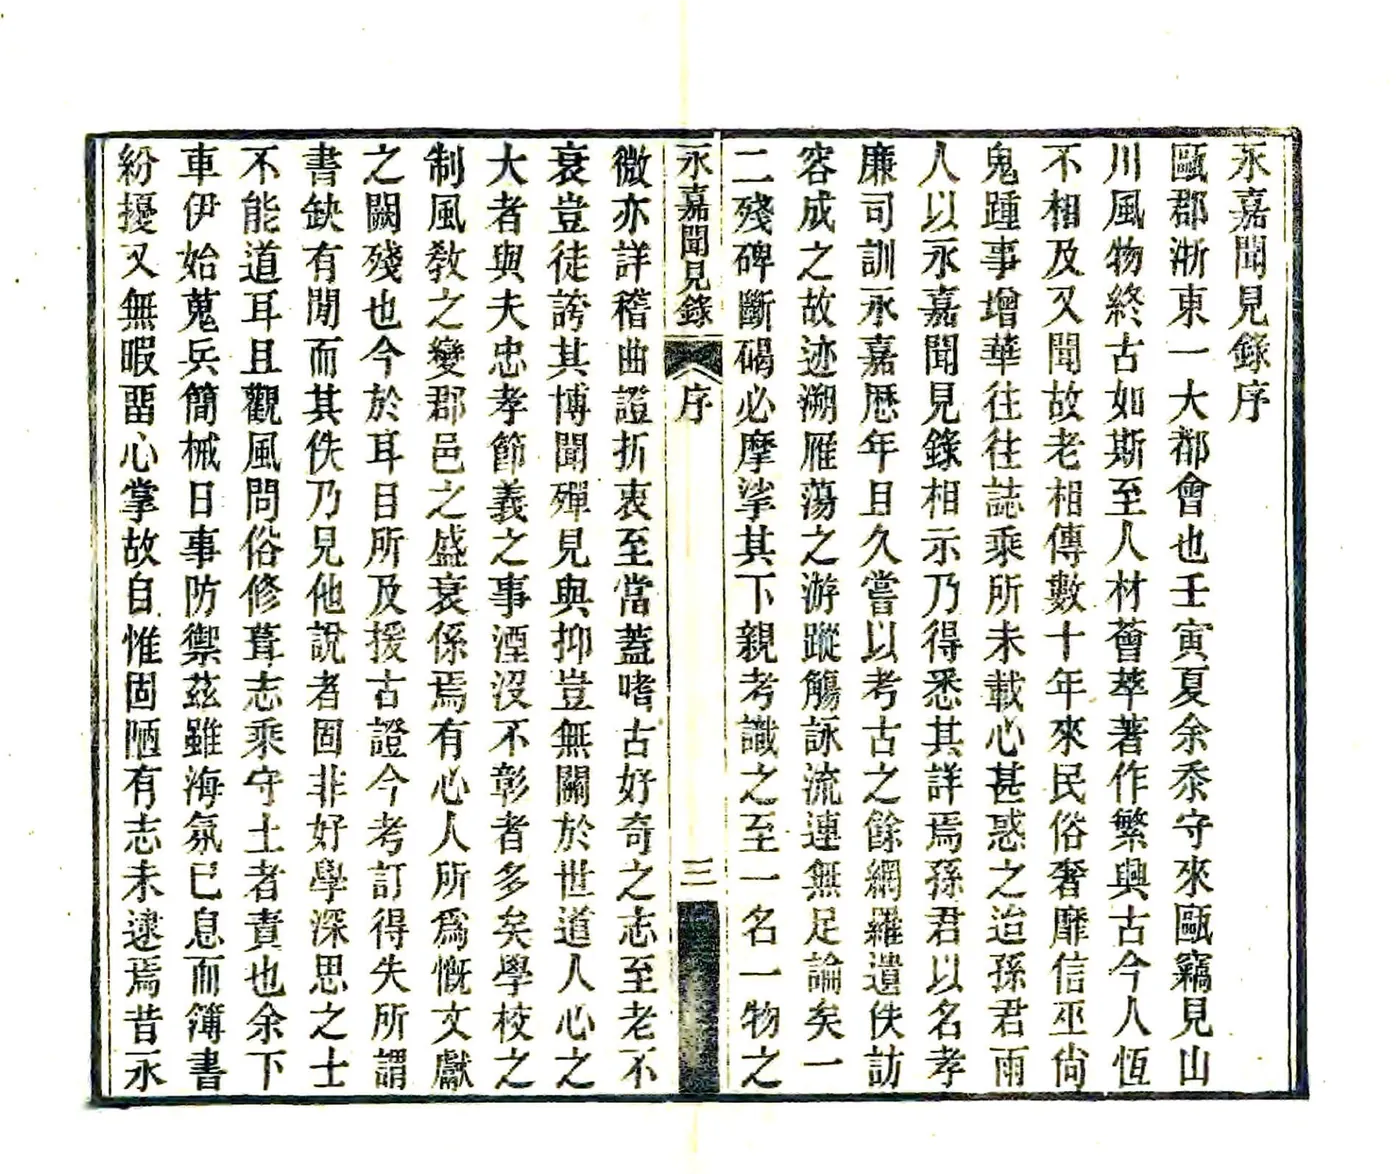 永嘉聞見錄序
甌郡浙東一大都會也壬寅夏余忝守來甌竊見山
川風物終古如斯至人材薈萃著作繁興古今人恆
不相及又聞故老相傳數十年來民俗奢靡信巫尙
鬼踵事增華往往誌乘所未載心甚惑之迨孫君雨
人以永嘉聞見錄相示乃得悉其詳焉孫君以名孝
廉司訓永嘉歷年日久嘗以考古之餘網羅遺佚訪
容成之故迹溯雁蕩之游蹤觴詠流連無足論矣一
二殘碑斷碣必摩挲其下親考識之至一名一物之
永嘉聞見錄 序 三
微亦詳稽曲證折衷至當蓋嗜古好奇之志至老不
衰豈徒誇其博聞殫見與抑豈無關於世道人心之
大者與夫忠孝節義之事湮沒不彰者多矣學校之
制風敎之變郡邑之盛衰係焉有心人所爲慨文獻
之闕殘也今於耳目所及援古證今考訂得失所謂
書缺有閒而其佚乃見他說者固非好學深思之士
不能道耳且觀風問俗修葺志乘守土者責也余下
車伊始蒐兵簡械日事防禦茲雖海氛已息而簿書
紛擾又無暇畱心掌故自惟固陋有志未逮焉昔永